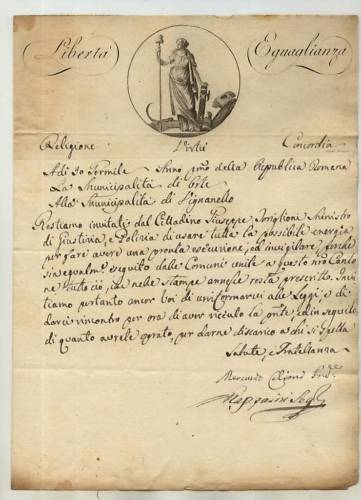 Libertà Eguaglianza
Religione Virtù Concordia
A di 30 Termile Anno pmo della Republica Romana
La Municipalità di Orte
Alla Municipalità di Vignanello
Restiamo invitati dal Cittadino Giuseppe Toriglioni Ministro
di Giustizia, e Polizia di usare tutta la possibile energia
per fare avere una pronta esecuzione, ed invigilare, perchè
sia egualmte eseguito dalle Comuni unite a questo nro Canto
ne tutto ciò, che nelle stampe annesse resta prescritto. Invi
tiamo pertanto ancor voi di uniformarvi alle Leggi e di
darci rincontro per ora di aver ricevuto la pnte, ed in seguito
di quanto avrete oprato, per darne discarico a chi si spetta
Salute, e Fratellanza